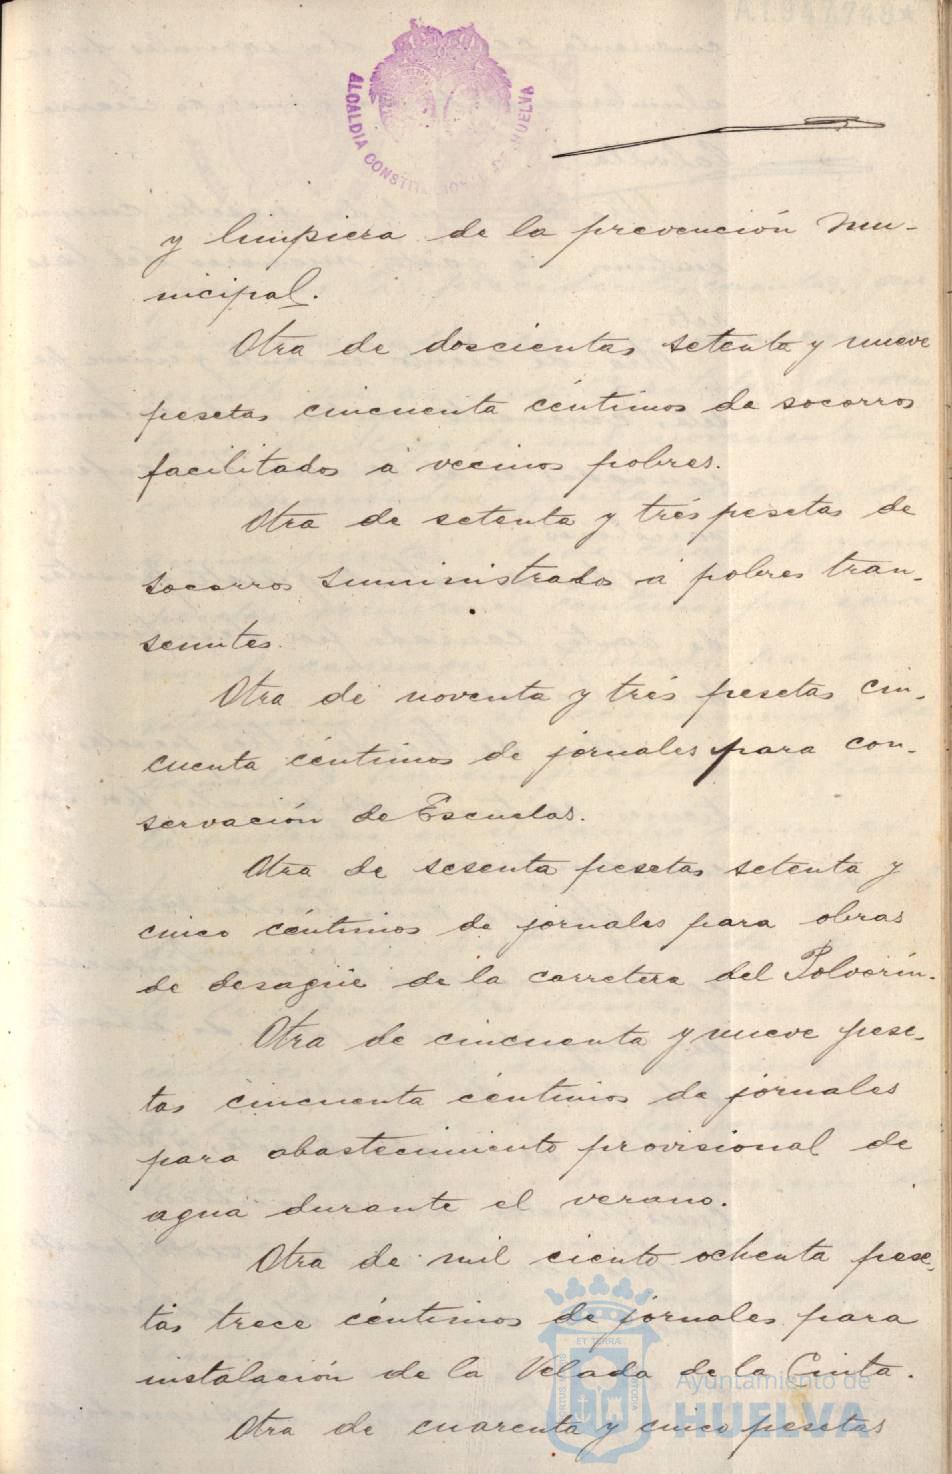 A1.947.748*
ALCALDIA CONSTITUCIONAL DE HUELVA
y limpiera de la prevención Mu-
nicipal.
Otra de doscientas setenta y nueve
pesetas cincuenta céntimos de socorros
facilitados á vecinos pobres.
Otra de setenta y trés pesetas de
socorros suministrados á pobres tran-
seuntes.
Otra de noventa y trés pesetas cin-
cuenta céntimos de jornales para con-
servación de Escuelas.
Otra de sesenta pesetas setenta y
cinco céntimos de jornales para obras
de desagüe de la carretera del Polvorín.
Otra de cincuenta y nueve pese-
tas cincuenta céntimos de jornales
para abastecimiento provisional de
agua durante el verano.
Otra de mil ciento ochenta pese-
tas trece céntimos de jornales para
instalación de la Velada de la Cinta.
Otra de cuarenta y cinco pesetas
ET TERRA
PORTUS
CUSTODIA
Ayuntamiento de
HUELVA